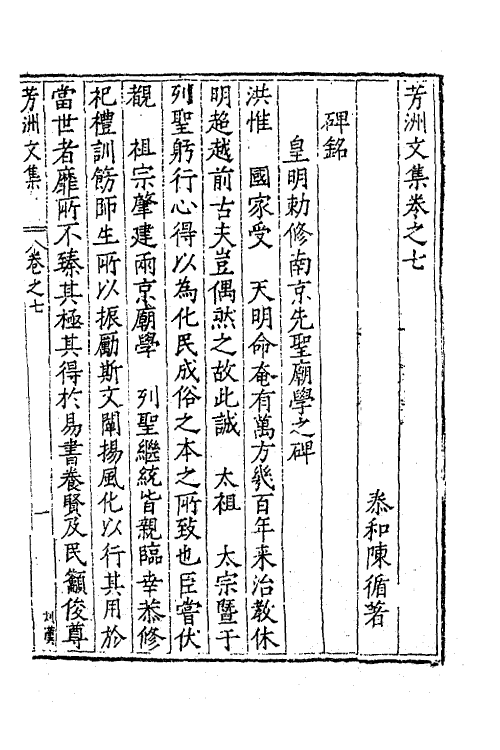 芳洲文集卷之七
泰和陳循著
碑銘
皇明勑修南京先聖廟學之碑
洪惟　國家受　天明命奄有萬方幾百年来治教休
明超越前古夫豈偶然之故此誠　太祖　太宗曁于
列聖躬行心得以為化民成俗之本之所致也臣嘗伏
觀　祖宗肇建兩京廟學　列聖繼統皆親臨幸恭修
祀禮訓飭師生所以振勵斯文闡揚風化以行其用於
當世者靡所不臻其極其得於易書養賢及民籲俊尊
芳洲文集　卷之七　一